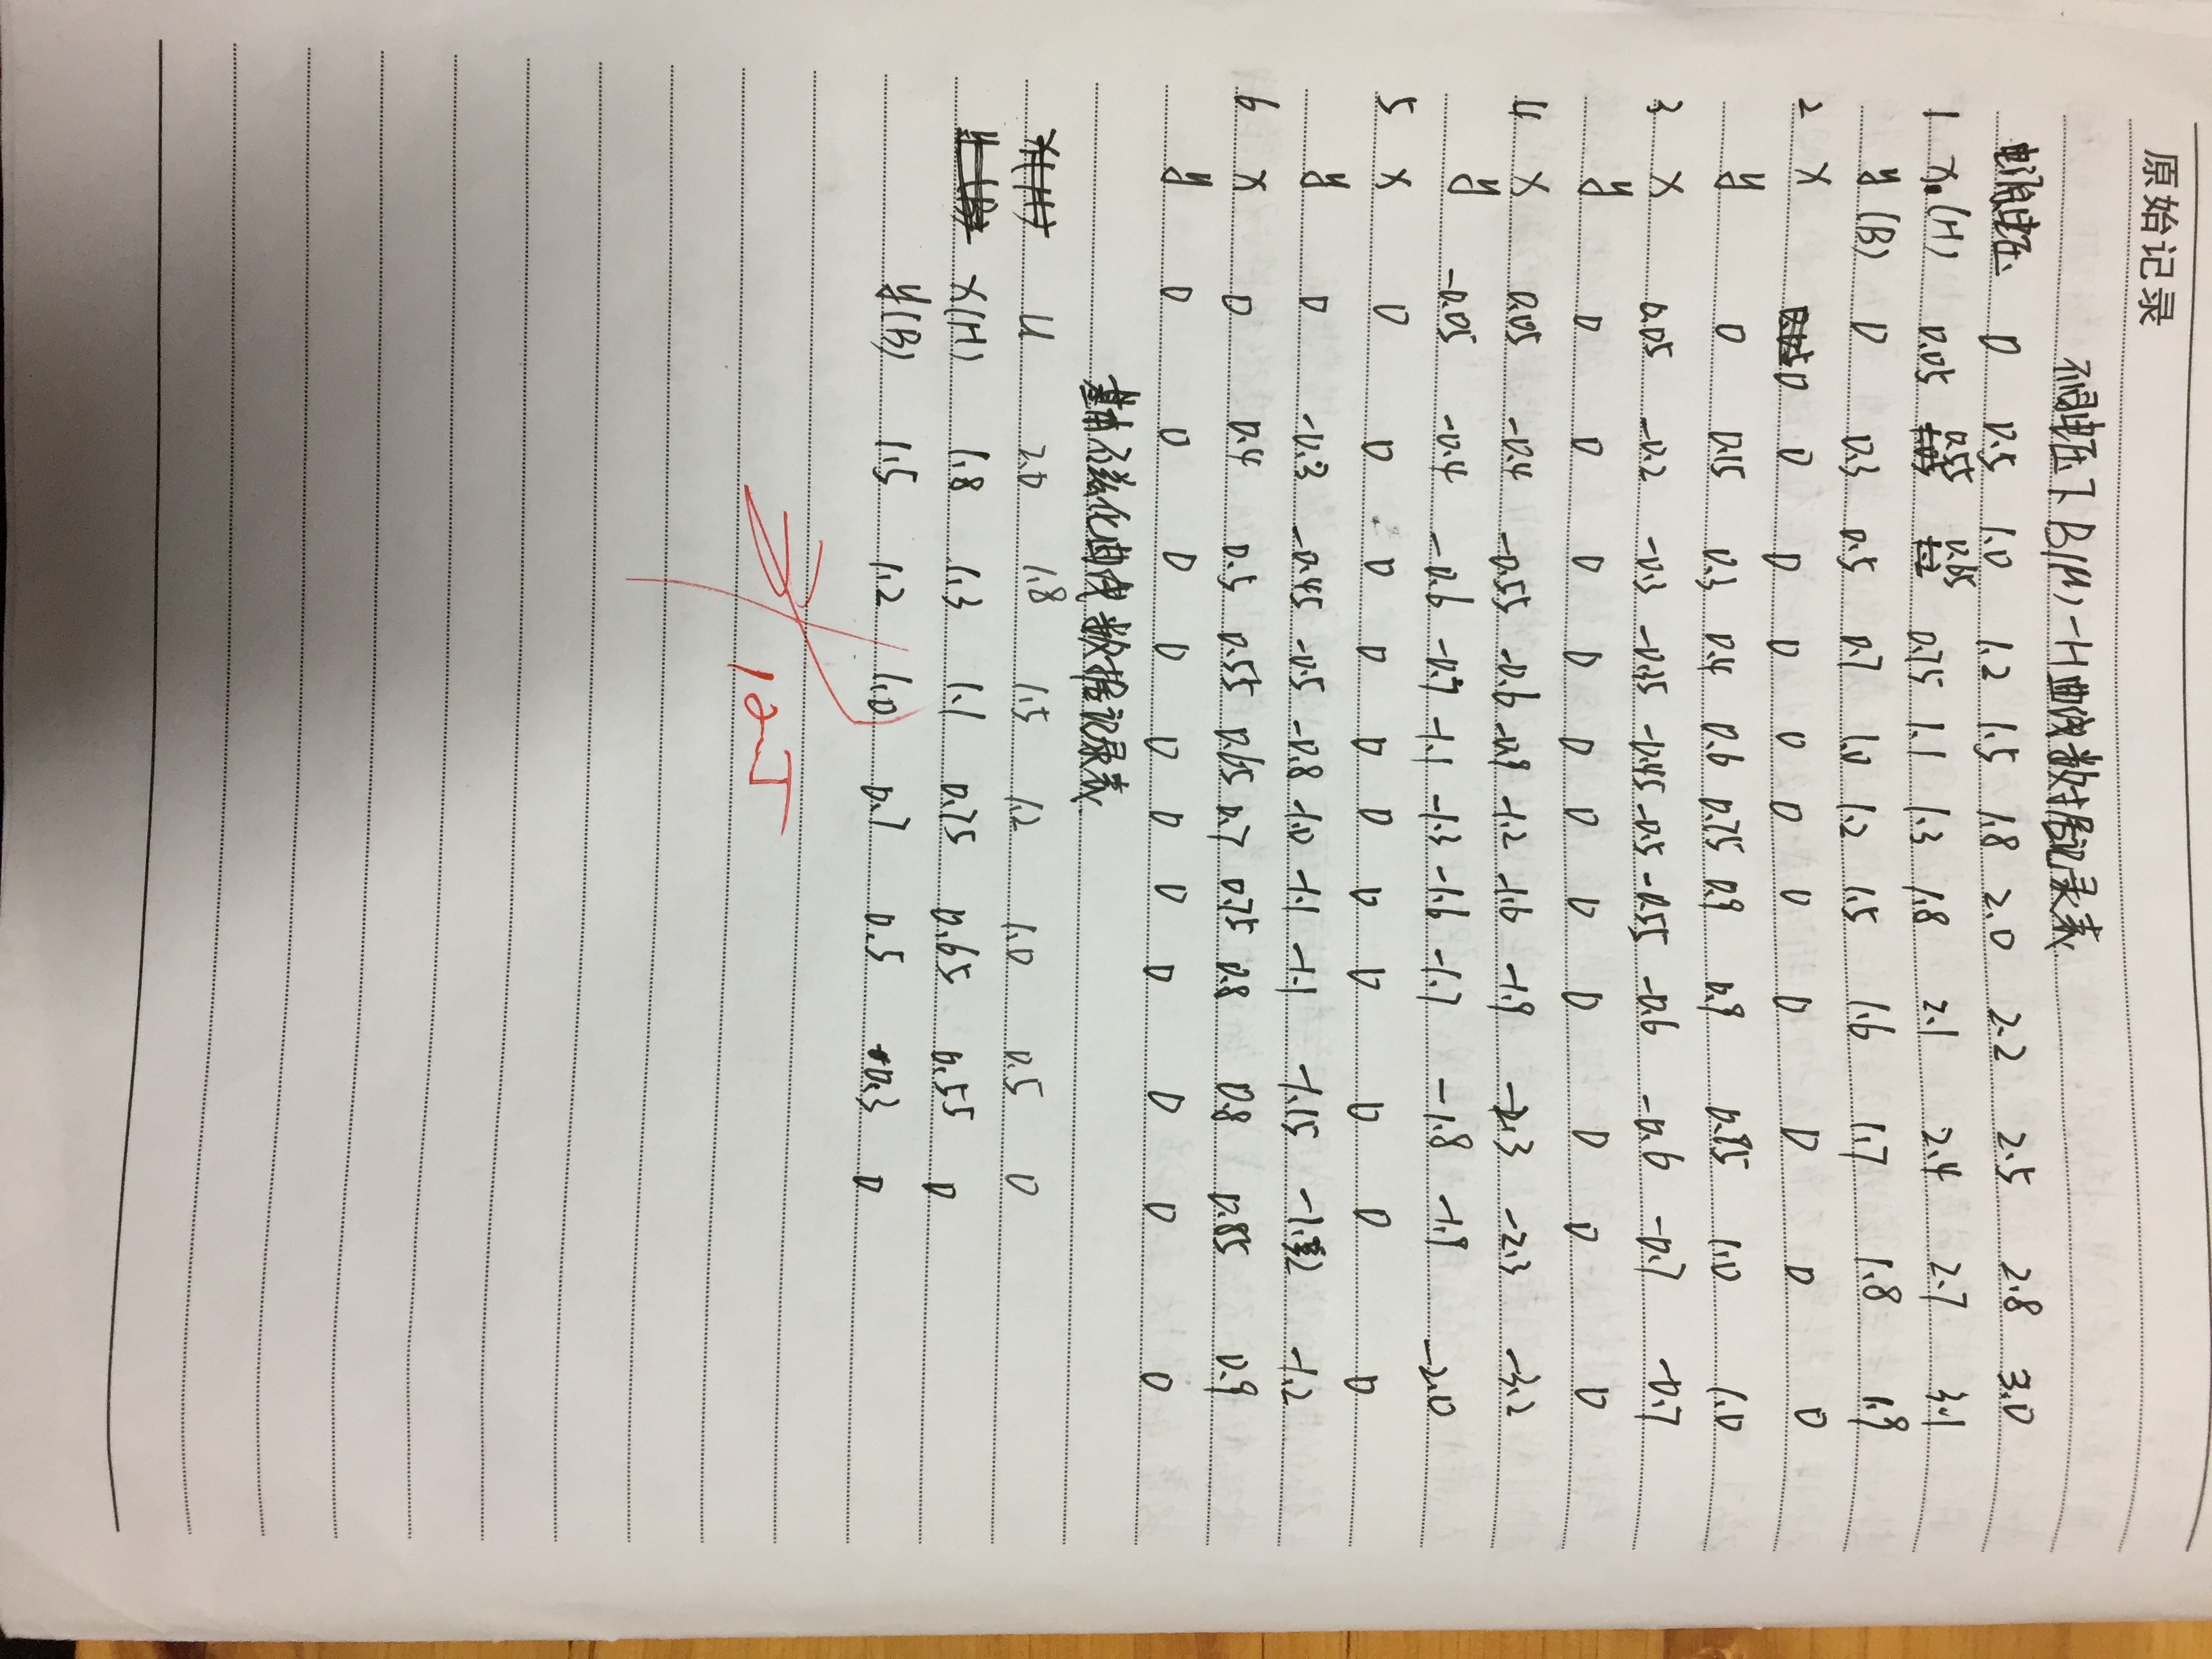 原始记录
不同电压下B(μ)-H曲线数据记录表
电压 0 0.5 1.0 1.2 1.5 1.8 2.0 2.2 2.5 2.8 3.0
1 x(H) 0.05 0.55 0.65 0.75 1.1 1.3 1.8 2.1 2.4 2.7 3.1
y(B) 0 0.3 0.5 0.7 1.0 1.2 1.5 1.6 1.7 1.8 1.9
2 x 0 0 0 0 0 0 0 0 0 0 0
y 0 0.15 0.3 0.4 0.6 0.75 0.9 0.9 0.95 1.0 1.0
3 x 0.05 -0.2 -0.3 -0.45 -0.45 -0.5 -0.55 -0.6 -0.6 -0.7 -0.7
y 0 0 0 0 0 0 0 0 0 0 0
4 x 0.05 -0.4 -0.55 -0.6 -0.9 -1.2 -1.6 -1.9 -2.3 -3.2
y -0.05 -0.4 -0.6 -0.7 -1.1 -1.3 -1.6 -1.7 -1.8 -1.9 -2.0
5 x 0 0 0 0 0 0 0 0 0 0 0
y 0 -0.3 -0.45 -0.5 -0.8 -1.0 -1.1 -1.1 -1.15 -1.2 -1.2
6 x 0 0.4 0.5 0.55 0.65 0.7 0.75 0.8 0.8 0.85 0.9
y 0 0 0 0 0 0 0 0 0 0 0
基本磁化曲线数据记录表
U 2.2 1.8 1.5 1.2 1.0 0.5 0
x(H) 1.8 1.3 1.1 0.75 0.65 0.55 0
y(B) 1.5 1.2 1.0 0.7 0.5 0.3 0